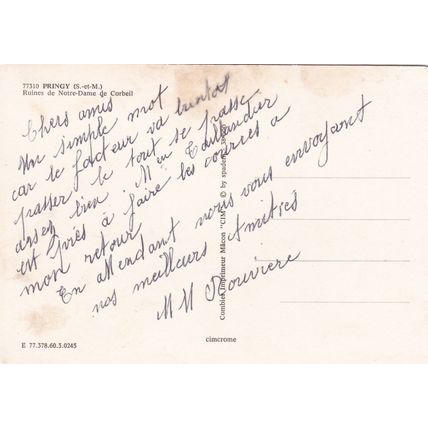 77310 PRINGY (S.-et-M.)
Ruines de Notre-Dame de Corbeil
Chers amis
Un simple mot
car le facteur va bientôt
passer le tout se passe
assez bien. Mme
est prêts à faire les courses a
mon retour
En attendant nous vous envoyant
nos meilleurs Amitiés
M M Rouvière
Combier Imprimeur Mâcon "CIM" © by
E 77.378.60.3.0245
cimcrome